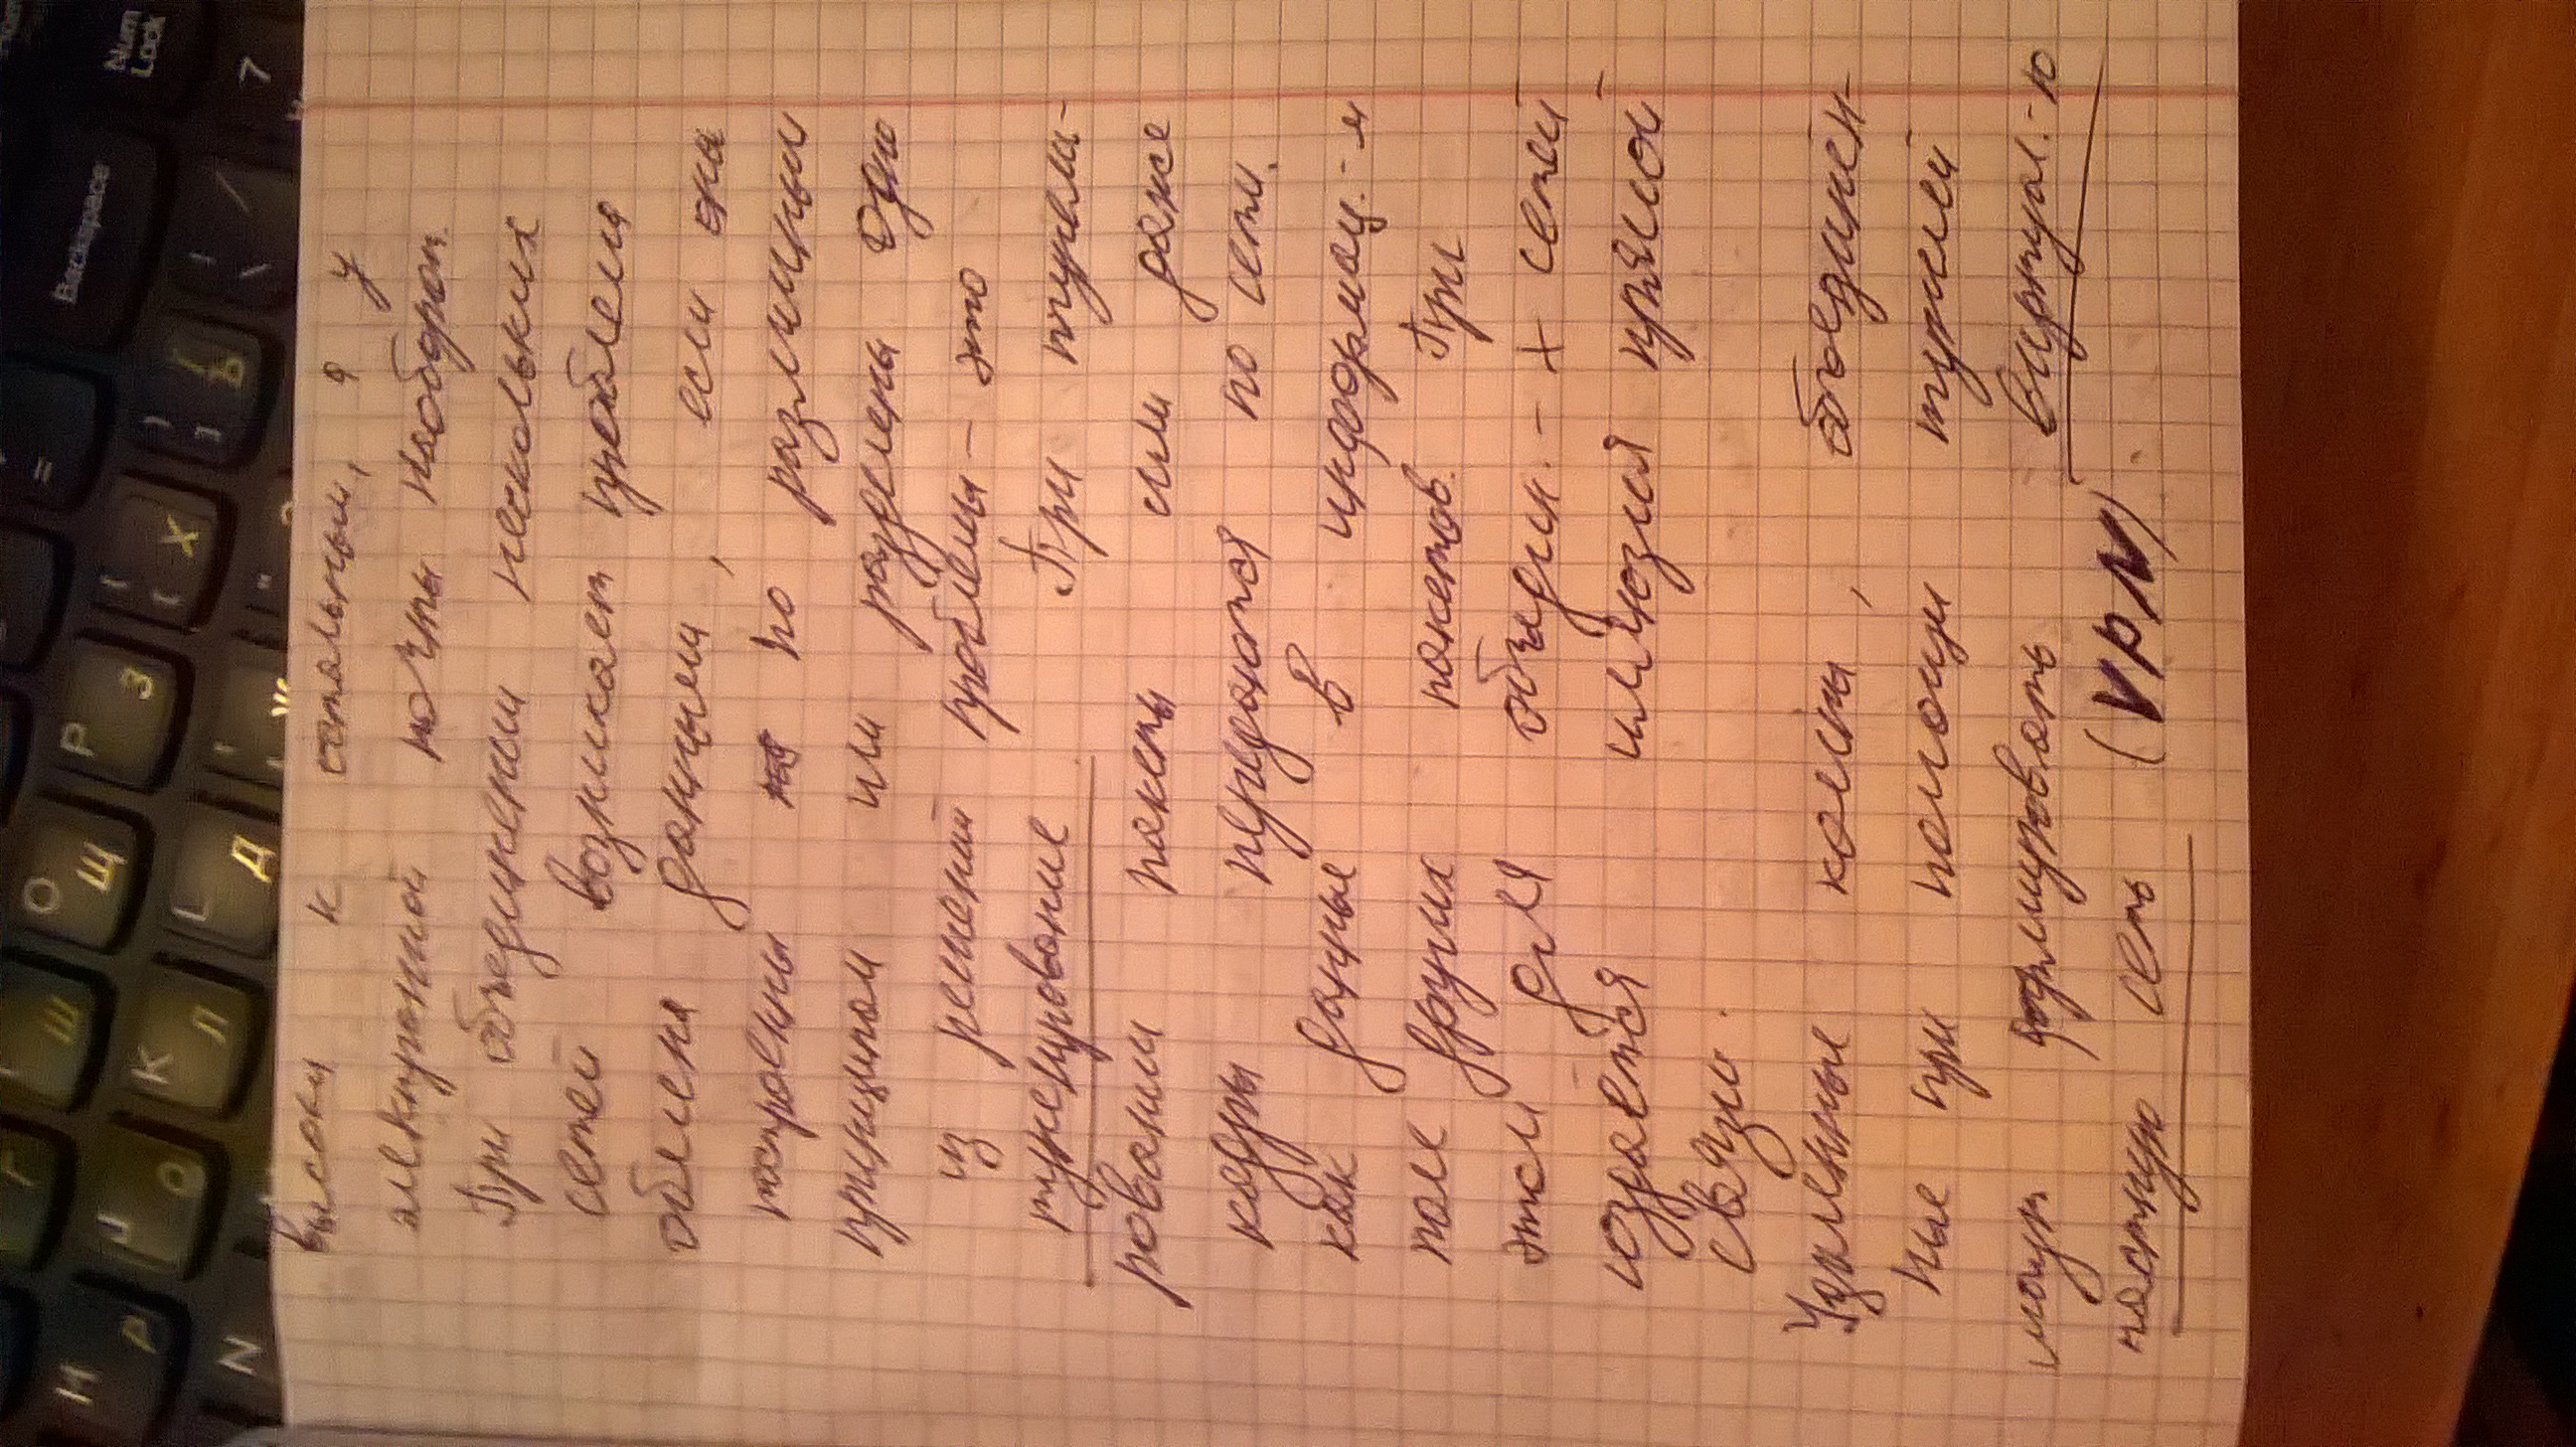 Г
Ш
О
Щ
Р
З
=
Backspace
Num
Lock
Н
Р
J
О
К
Л
L
Д
Х
Ъ
N
Ж
7
высоки к остальным, а у
электронной почты наоборот.
При объединении нескольких
сетей возникает проблема
обмена данными, если они
построенны по различным
принципам или разделены одно
из решений проблемы - это
туненирование. При тунели-
ровании пакеты или даже
кадры передаются по сети.
как данные в информац.-м
поле других пакетов. При
этом для объедин.-х сетей
создаётся иллюзия прямой
связи.
Удаленные компы, объединён-
ные при помощи тунелей
могут формировать виртуал.-ю
частную сеть (VPN).